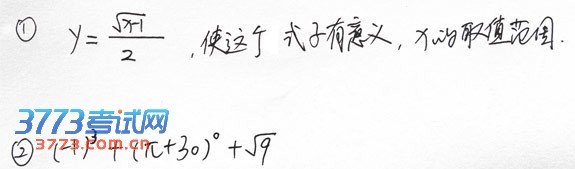 ① y = √(x-1) / 2 , 使这个式子有意义, x的取值范围.
3773考试网
3773.com.cn
② (-1)³ + (π+30)⁰ + √9